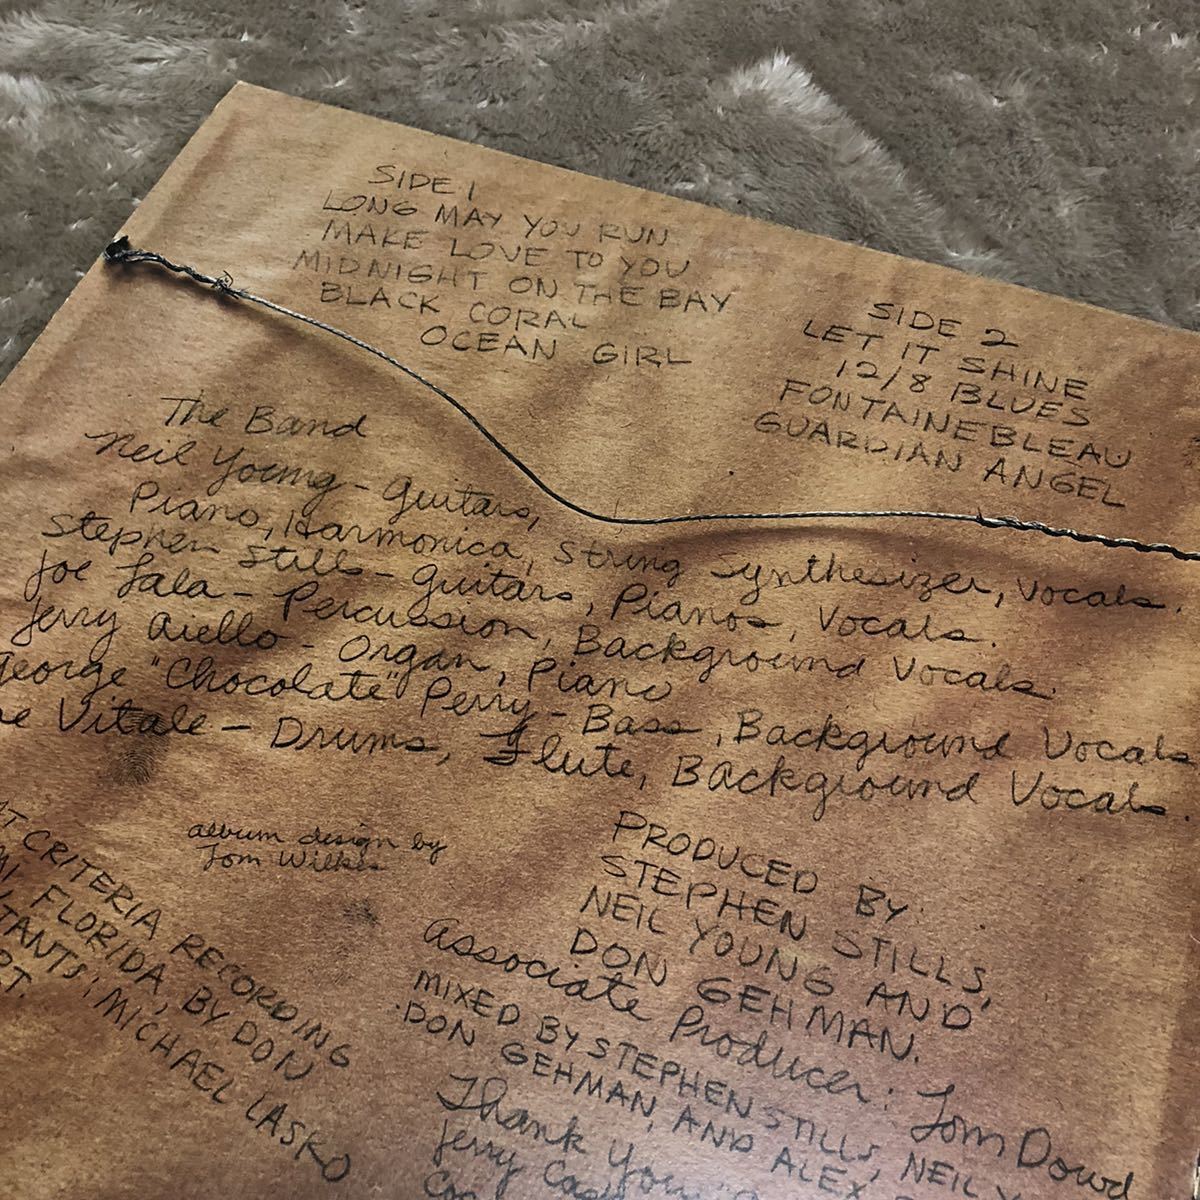 SIDE 1
LONG MAY YOU RUN
MAKE LOVE TO YOU
MIDNIGHT ON THE BAY
BLACK CORAL
OCEAN GIRL
SIDE 2
LET IT SHINE
12/8 BLUES
FONTAINEBLEAU
GUARDIAN ANGEL
The Band
Neil Young - Guitars,
Piano, Harmonica, String Synthesizer, Vocals.
Stephen Stills - Guitars, Pianos, Vocals.
Joe Lala - Percussion, Background Vocals.
Jerry Aiello - Organ, Piano
George "Chocolate" Perry - Bass, Background Vocals
Vitale - Drums, Flute, Background Vocals.
album design by
Tom Wilkes
AT CRITERIA RECORDING
FLORIDA, BY DON
MICHAEL LASKO
PRODUCED BY:
STEPHEN STILLS,
NEIL YOUNG AND
DON GEHMAN.
Associate Producer: Tom Dowd
MIXED BY STEPHEN STILLS, NEIL
DON GEHMAN, AND ALEX
Thank You
Jerry